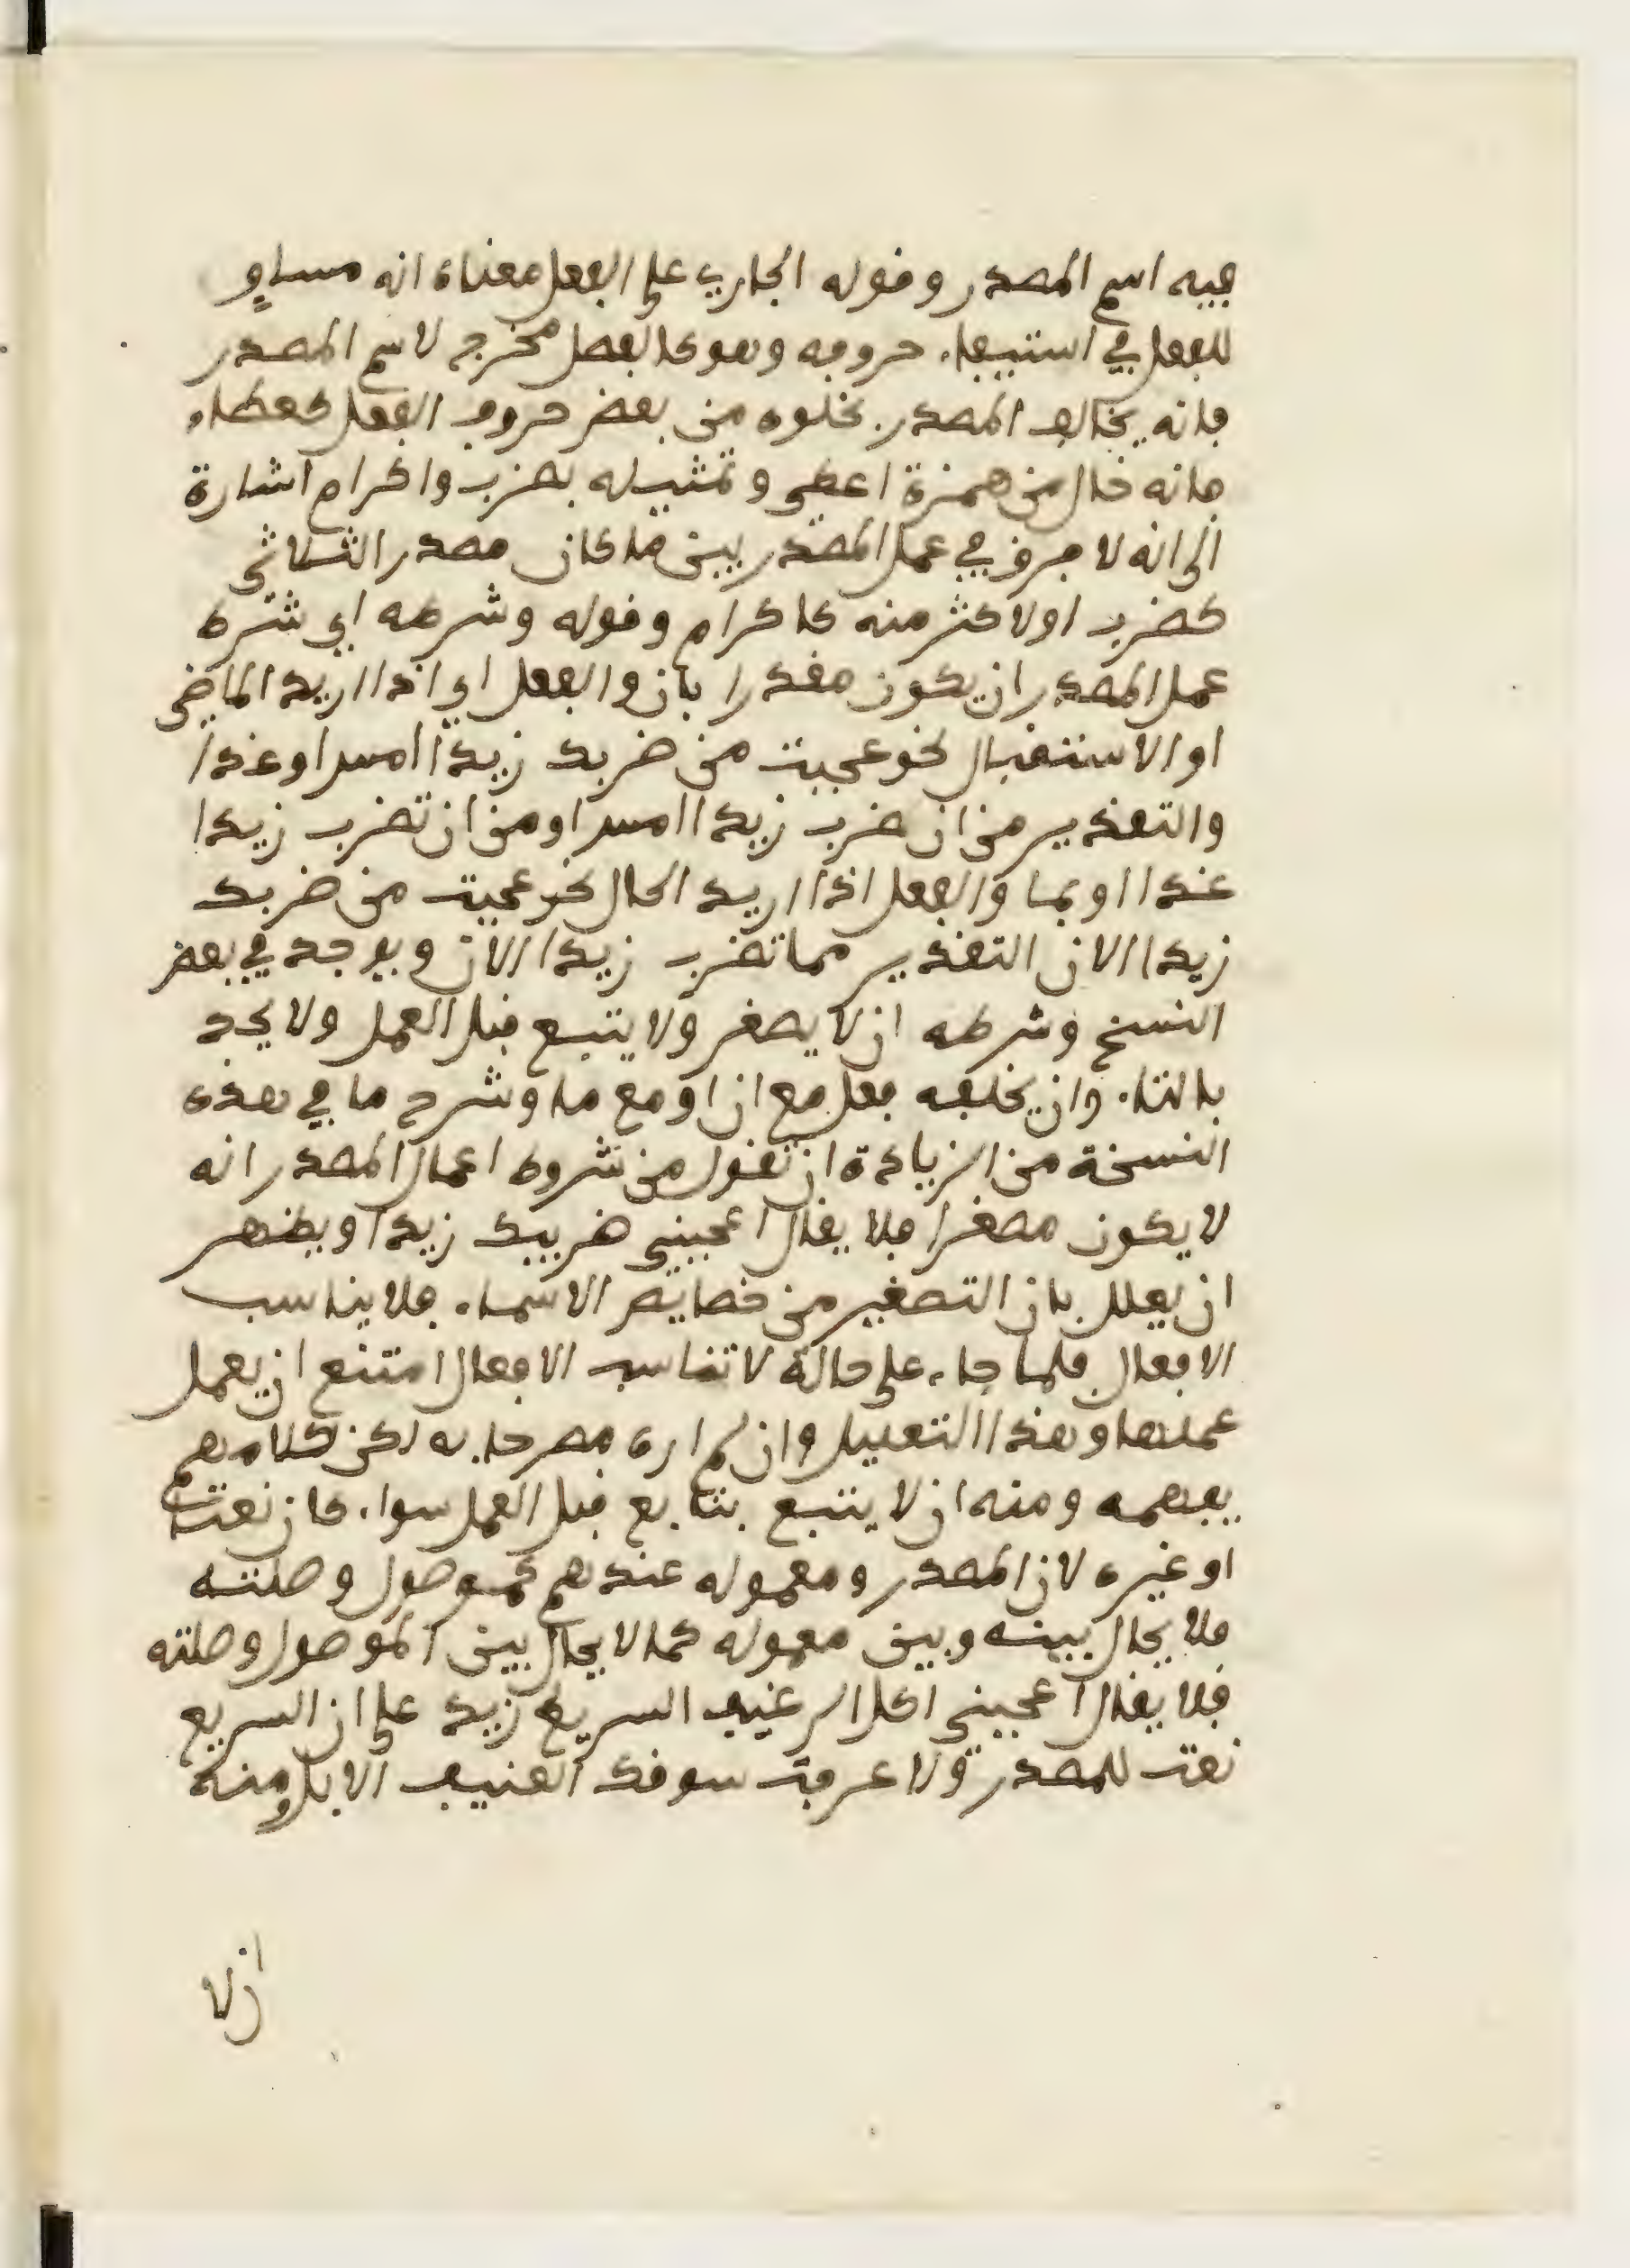 فيه اسم المصدر وقوله الجاري على الفعل معناه انه مساوٍ
للفعل في استيفاء حروفه وهو كالفصل مخرج لاسم المصدر
فانه يخالف المصدر بخلوه من بعض حروف الفعل كعطاء
فانه خال من همزة اعطى وتمثيله بضرب واكرام اشارة
الى انه لا فرق في عمل المصدر بين ما كان مصدر الثلاثي
كضرب او لاكثر منه كاكرام وقوله وشرطه اي شرط
عمل المصدر ان يكون مقدرا بان والفعل اي اذا اريد الماضي
او الاستقبال نحو عجبت من ضربك زيدا امس او غدا
والتقدير من ان ضرب زيدا امس او من ان تضرب زيدا
غدا او بما والفعل اذا اريد الحال نحو عجبت من ضربك
زيدا الان التقدير مما تضرب زيدا الان ويوجد في بعض
النسخ وشرطه ان لا يصغر ولا يتبع قبل العمل ولا يحد
بالتاء وان يخلفه فعل مع ان او مع ما وشرح ما في هذه
النسخة من الزيادة ان تقول من شروط اعمال المصدر انه
لا يكون مصغرا فلا يقال اعجبني ضريبك زيدا ويظهر
ان يعلل بان التصغير من خصايص الاسماء فلا يناسب
الافعال فلما جاء على حالة لا تناسب الافعال امتنع ان يعمل
عملها وهذا التعليل وان لم اره مصرحا به لكن كلامهم
يفهمه ومنه ان لا يتبع بتابع قبل العمل سواء كان نعتا
او غيره لان المصدر ومعموله عندهم كموصول وصلته
فلا يحال بينه وبين معموله كما لا يحال بين الموصول وصلته
فلا يقال اعجبني اكل الرغيف السريع زيد على ان السريع
نعت للمصدر ولا عرفت سوقك العنيف الابل ومنه
ان لا